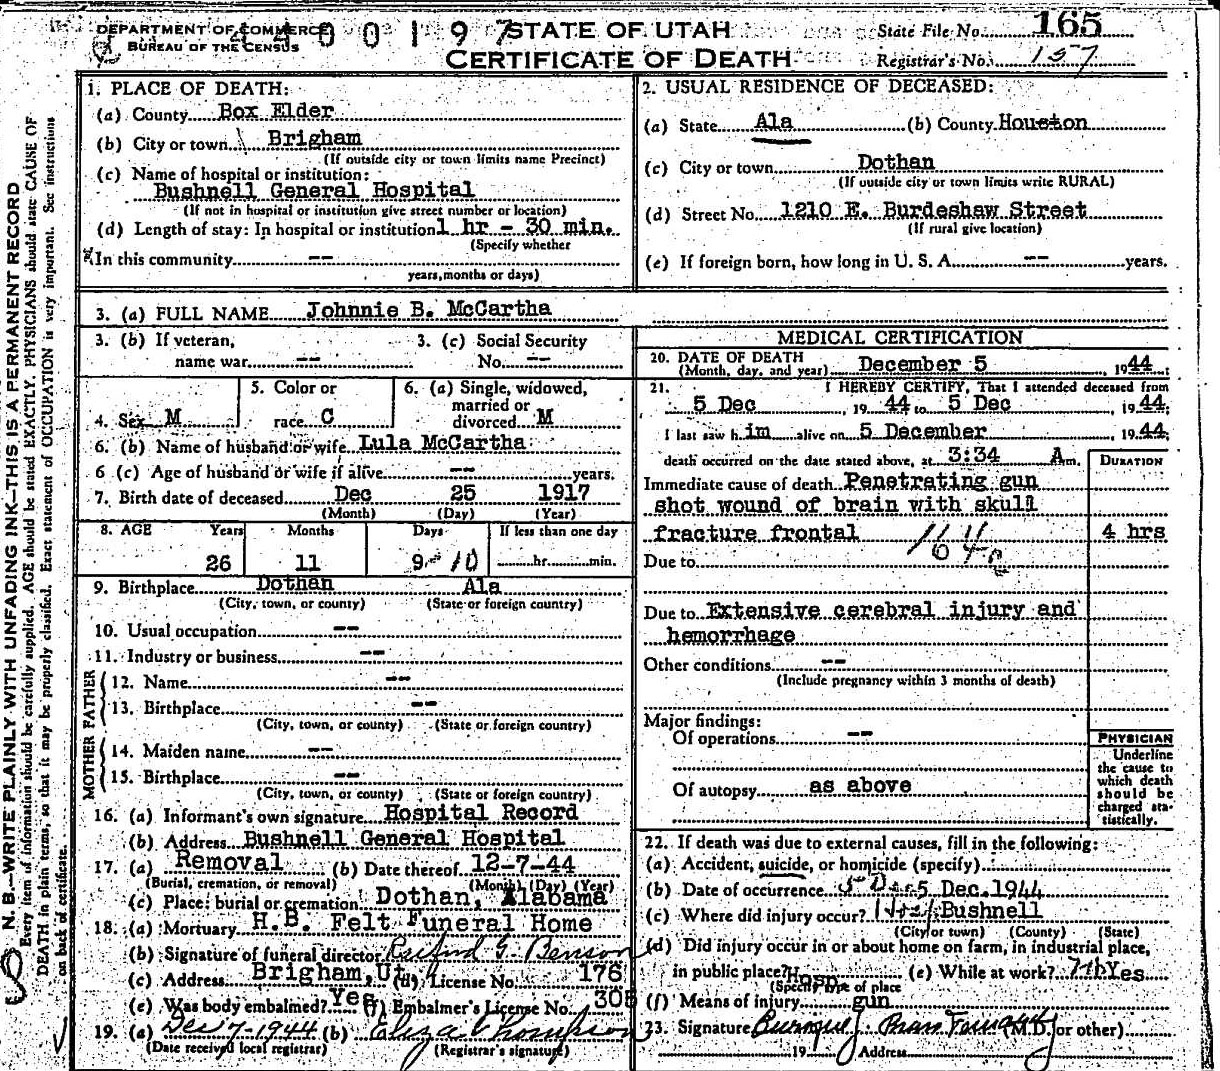 DEPARTMENT OF COMMERCE
BUREAU OF THE CENSUS
400197
STATE OF UTAH
CERTIFICATE OF DEATH
State File No. 165
Registrar's No. 157
N. B.—WRITE PLAINLY WITH UNFADING INK—THIS IS A PERMANENT RECORD
Every item of information should be carefully supplied. AGE should be stated EXACTLY. PHYSICIANS should state CAUSE OF
DEATH in plain terms, so that it may be properly classified. Exact statement of OCCUPATION is very important. See instructions
on back of certificate.
1. PLACE OF DEATH:
(a) County Box Elder
(b) City or town Brigham
(If outside city or town limits name Precinct)
(c) Name of hospital or institution:
Bushnell General Hospital
(If not in hospital or institution give street number or location)
(d) Length of stay: In hospital or institution 1 hr - 30 min.
(Specify whether
In this community --
years, months or days)
2. USUAL RESIDENCE OF DECEASED:
(a) State Ala (b) County Houston
(c) City or town Dothan
(If outside city or town limits write RURAL)
(d) Street No. 1210 E. Burdeshaw Street
(If rural give location)
(e) If foreign born, how long in U. S. A. -- years.
3. (a) FULL NAME Johnnie B. McCartha
3. (b) If veteran,
name war --
3. (c) Social Security
No. --
4. Sex M
5. Color or
race C
6. (a) Single, widowed,
married or
divorced M
6. (b) Name of husband or wife Lula McCartha
6 (c) Age of husband or wife if alive -- years.
7. Birth date of deceased Dec 25 1917
(Month) (Day) (Year)
8. AGE Years Months Days If less than one day
26 11 9 10 hr. min.
9. Birthplace Dothan Ala
(City, town, or county) (State or foreign country)
10. Usual occupation --
11. Industry or business --
FATHER
12. Name --
13. Birthplace --
(City, town, or county) (State or foreign country)
MOTHER
14. Maiden name --
15. Birthplace --
(City, town, or county) (State or foreign country)
16. (a) Informant's own signature Hospital Record
(b) Address Bushnell General Hospital
17. (a) Removal (b) Date thereof 12-7-44
(Burial, cremation, or removal) (Month) (Day) (Year)
(c) Place: burial or cremation Dothan, Alabama
18. (a) Mortuary H.B. Felt Funeral Home
(b) Signature of funeral director G. Benson
(c) Address Brigham, Ut (d) License No. 176
(e) Was body embalmed? Yes (f) Embalmer's License No. 305
19. (a) Dec 7-1944 (b) Eliza Thompson
(Date received local registrar) (Registrar's signature)
MEDICAL CERTIFICATION
20. DATE OF DEATH
(Month, day, and year) December 5, 1944;
21. I HEREBY CERTIFY, That I attended deceased from
5 Dec, 1944 to 5 Dec, 1944;
I last saw him alive on 5 December 1944;
death occurred on the date stated above, at 3:34 Am.
DURATION
Immediate cause of death Penetrating gun
shot wound of brain with skull
fracture frontal 4 hrs
164a
Due to
Due to Extensive cerebral injury and
hemorrhage
Other conditions --
(Include pregnancy within 3 months of death)
Major findings:
Of operations --
Of autopsy as above
PHYSICIAN
Underline
the cause to
which death
should be
charged sta-
tistically.
22. If death was due to external causes, fill in the following:
(a) Accident, suicide, or homicide (specify)
(b) Date of occurrence 5 Dec 5 Dec. 1944
(c) Where did injury occur? Bushnell
(City or town) (County) (State)
(d) Did injury occur in or about home on farm, in industrial place,
in public place? Hosp (e) While at work? Yes
(Specify type of place
(f) Means of injury gun
23. Signature (M.D. or other)
19 Address